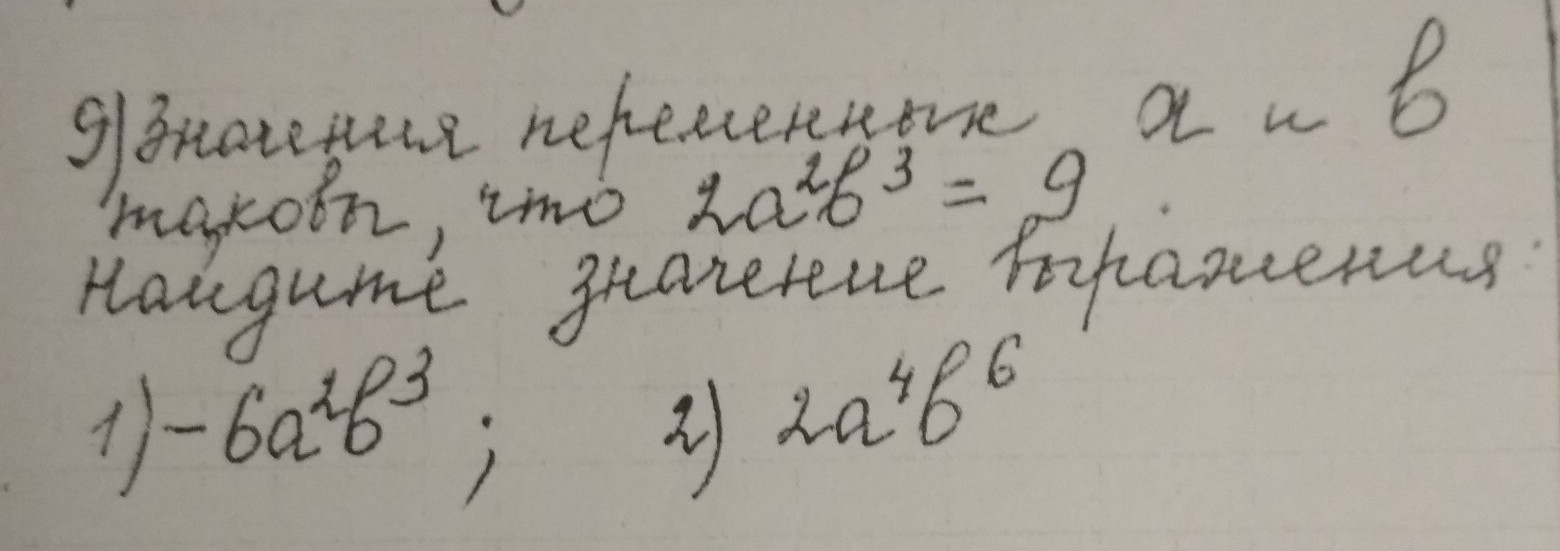 9) Значения переменных a и b
таковы, что 2a²b³ = 9.
Найдите значение выражения:
1) -6a²b³; 2) 2a⁴b⁶